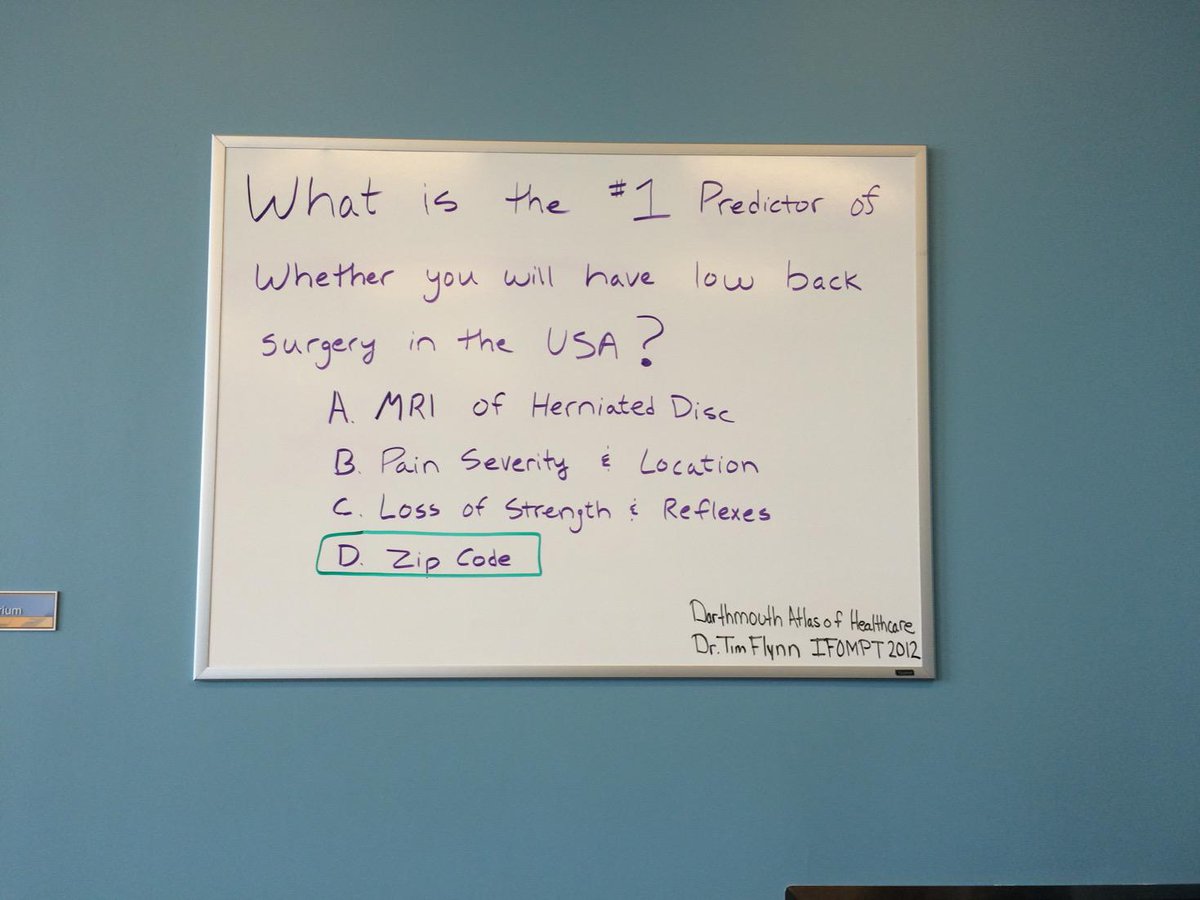 What is the #1 Predictor of
Whether you will have low back
surgery in the USA?
A. MRI of Herniated Disc
B. Pain Severity & Location
C. Loss of Strength & Reflexes
D. Zip Code
Darthmouth Atlas of Healthcare
Dr. Tim Flynn IFOMPT 2012